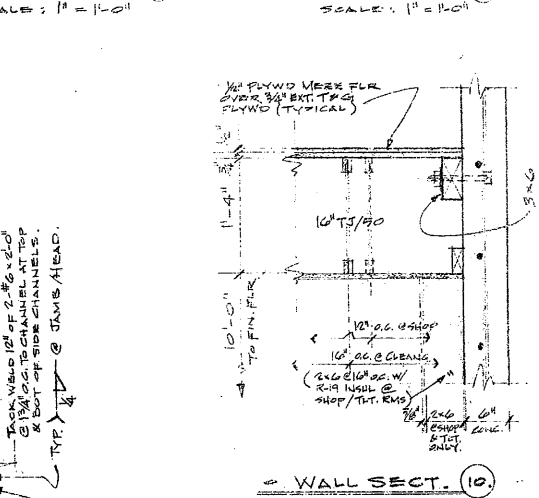 ALE: 1" = 1'-0"
SCALE: 1" = 1'-0"
1/2" PLYWD MEZZ FLR
OVER 3/4" EXT. T&G
PLYWD (TYPICAL)
1/2"
3/4"
1'-4"
16" TJ/50
3x6
10'-0"
TO FIN. FLR
12" O.C. @ SHOP
16" O.C. @ CLEANG
(2x6 @ 16" O.C. W/
R-19 INSUL @
SHOP/TLT. RMS)
5/8"
2x6
@ SHOP
& TLT.
ONLY.
6"
CONC.
WALL SECT. 10.
TACK WELD 12" OF 2-#6 x 2'-0"
@ 13/4" O.C. TO CHANNEL AT TOP
& BOT OF SIDE CHANNELS.
TYP. 1/4 @ JAMB/HEAD.